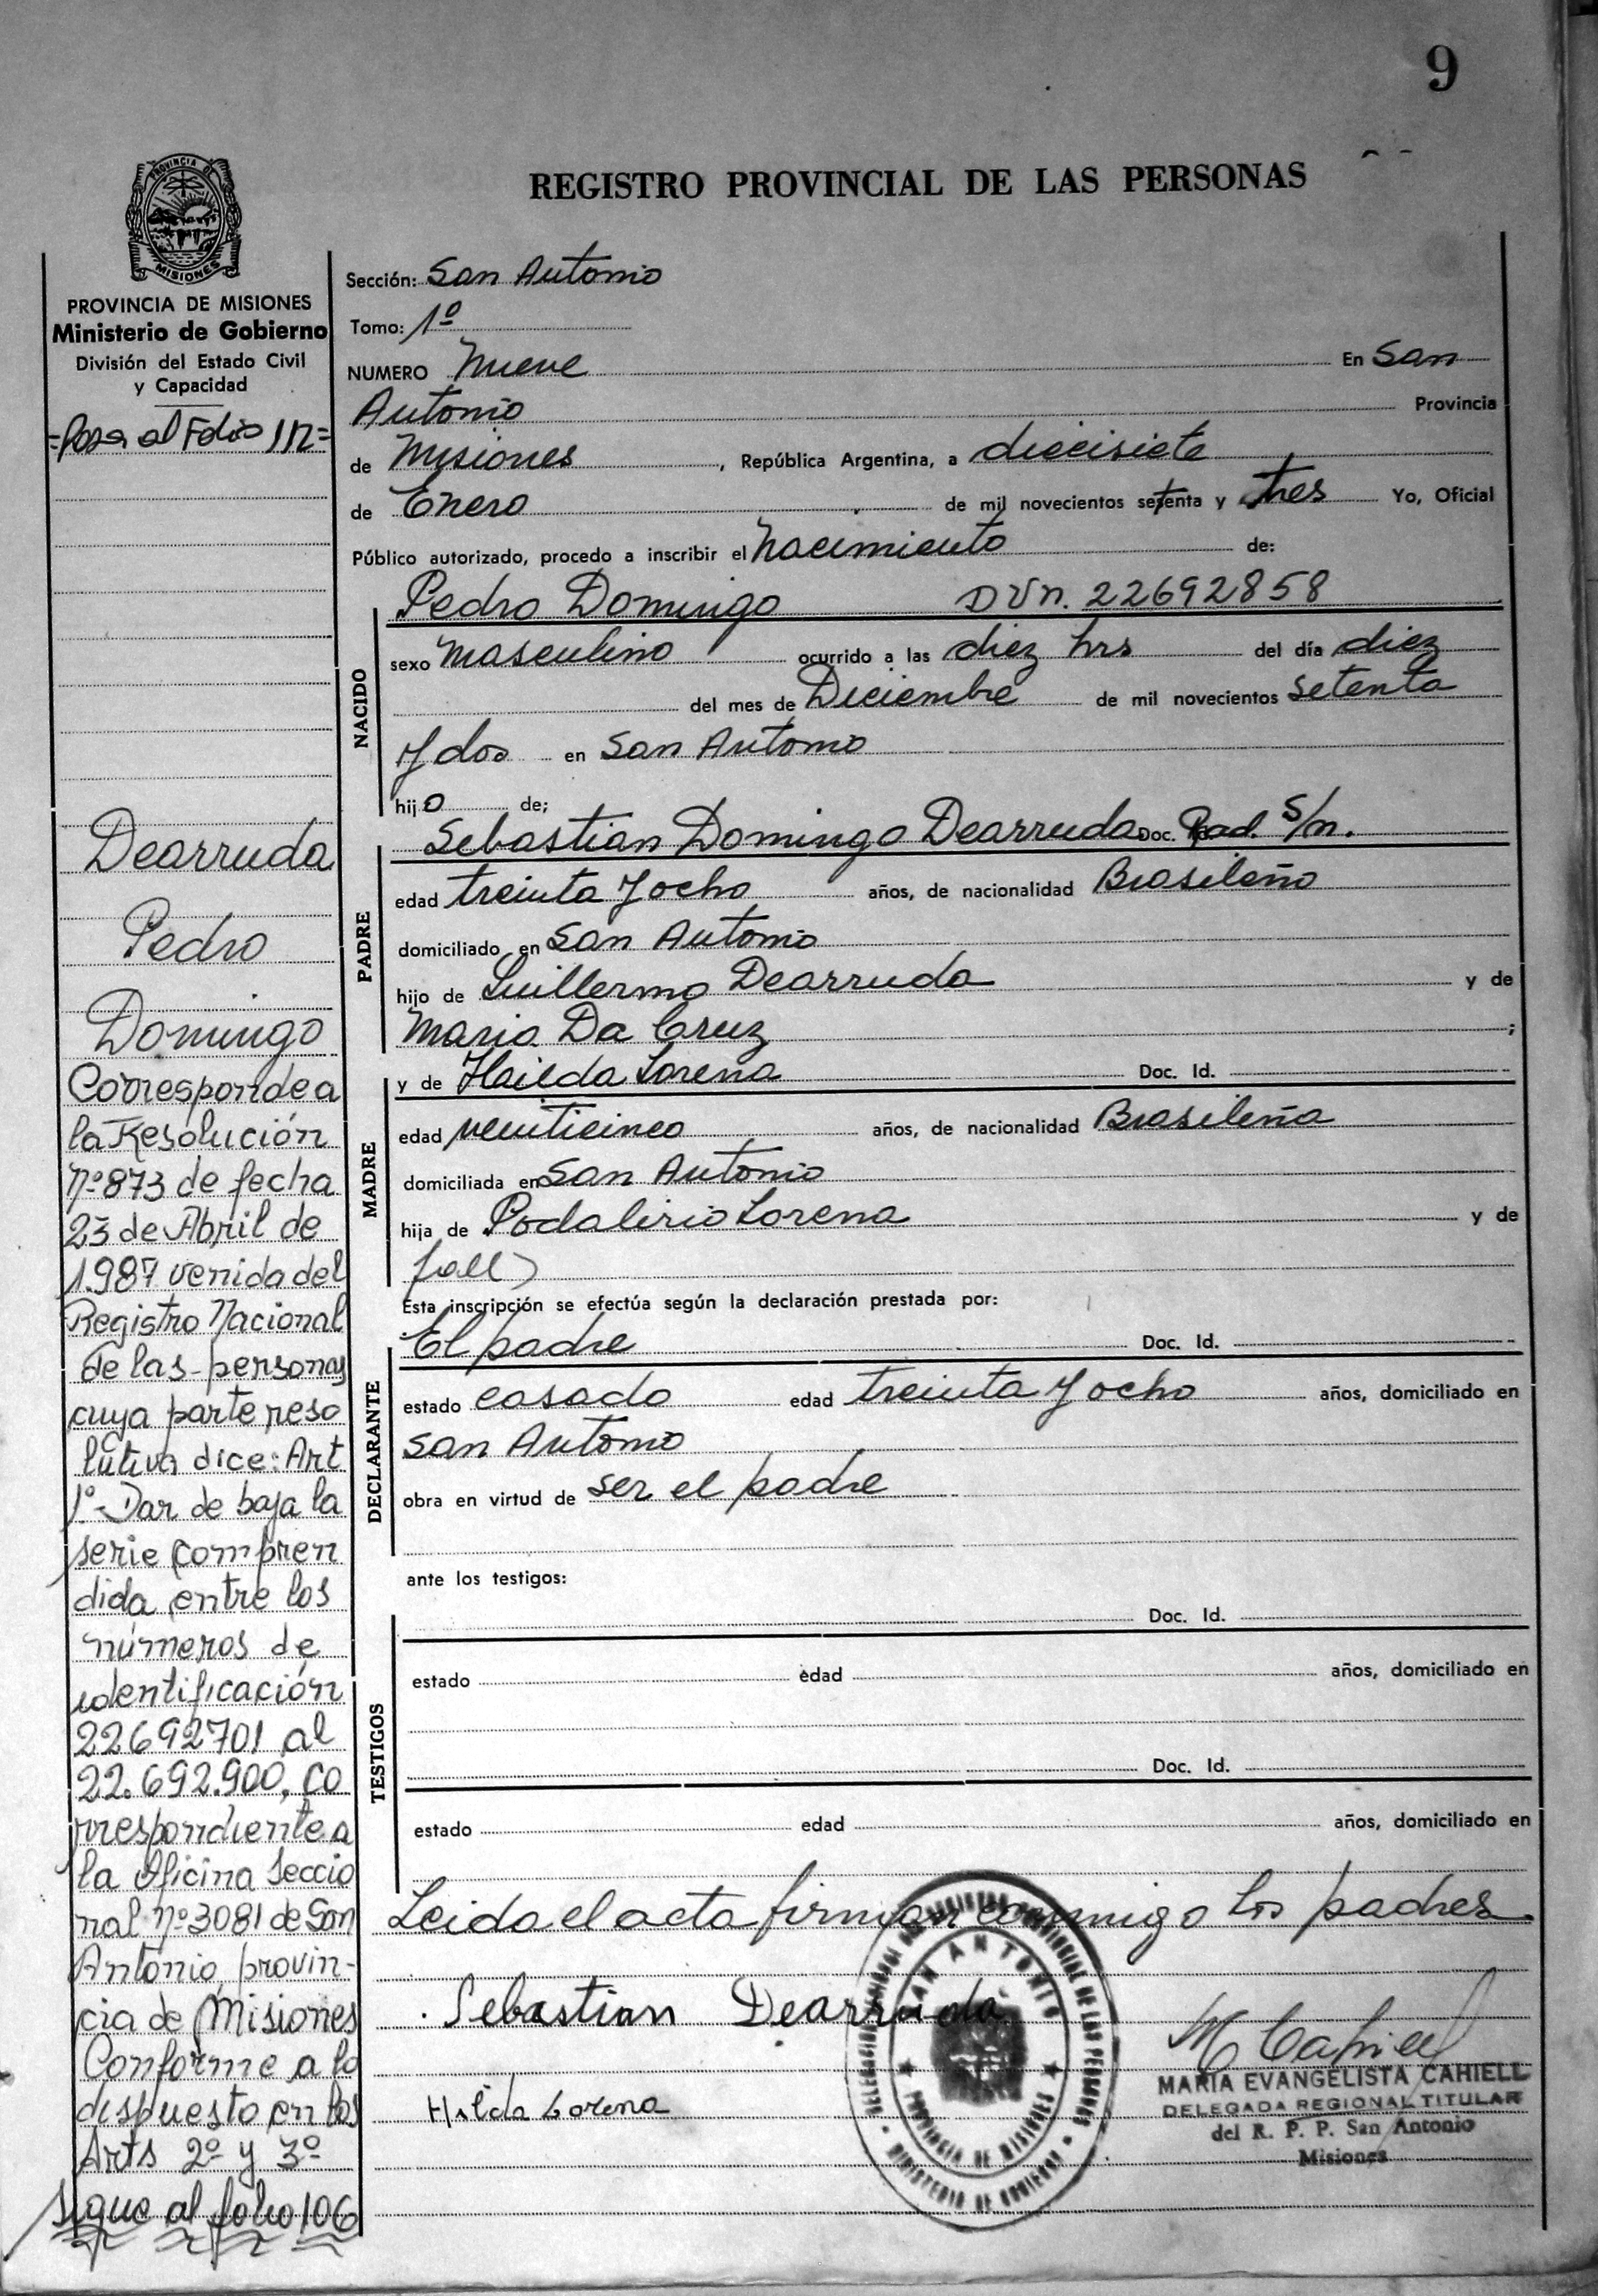 9
REGISTRO PROVINCIAL DE LAS PERSONAS
PROVINCIA DE
MISIONES
PROVINCIA DE MISIONES
Ministerio de Gobierno
División del Estado Civil
y Capacidad
=Pasa al Folio 112=
Dearruda
Pedro
Domingo
Corresponde a
la Resolución
Nº 873 de fecha
23 de Abril de
1987 venida del
Registro Nacional
de las personas
cuya parte reso
lutiva dice: Art
1º- Dar de baja la
serie compren
dida entre los
números de
identificación
22692701 al
22.692.900, co
rrespondiente a
la Oficina Seccio
nal nº 3081 de San
Antonio, provin-
cia de Misiones
Conforme a lo
dispuesto en los
Arts 2º y 3º
Sigue al folio 106
Sección: San Antonio
Tomo: 1º
NUMERO Nueve En San
Antonio Provincia
de Misiones, República Argentina, a diecisiete
de Enero de mil novecientos setenta y tres Yo, Oficial
Público autorizado, procedo a inscribir el Nacimiento de:
Pedro Domingo DUN. 22692858
NACIDO
sexo Masculino ocurrido a las diez hrs del día diez
del mes de Diciembre de mil novecientos setenta
y dos en San Antonio
hijo de;
Sebastian Domingo Dearruda Doc. Rad. S/n.
PADRE
edad treinta y ocho años, de nacionalidad Brasileño
domiciliado en San Antonio
hijo de Guillermo Dearruda y de
Maria Da Cruz ;
y de Hailda Lorena Doc. Id.
MADRE
edad veinticinco años, de nacionalidad Brasileña
domiciliada en San Antonio
hija de Podalirio Lorena y de
fall)
Esta inscripción se efectúa según la declaración prestada por:
El padre Doc. Id.
DECLARANTE
estado casado edad treinta y ocho años, domiciliado en
San Antonio
obra en virtud de ser el padre
ante los testigos:
Doc. Id.
TESTIGOS
estado edad años, domiciliado en
Doc. Id.
estado edad años, domiciliado en
Leida el acta firman conmigo los padres
Sebastian Dearruda
Hilda Lorena
SAN ANTONIO
PROVINCIA DE MISIONES
MINISTERIO DE GOBIERNO
M Cahiell
MARIA EVANGELISTA CAHIELL
DELEGADA REGIONAL TITULAR
del R. P. P. San Antonio
Misiones